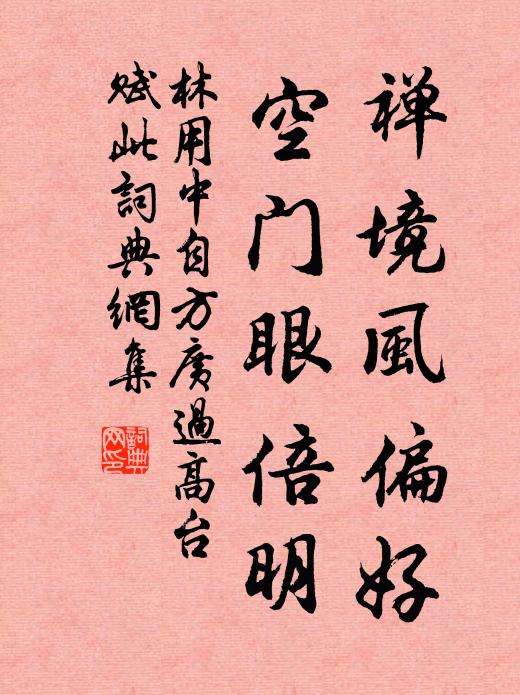 禅境風偏好
空门眼倍明
林用中自方廣過高台
赋此詞典網集
詞典
网印